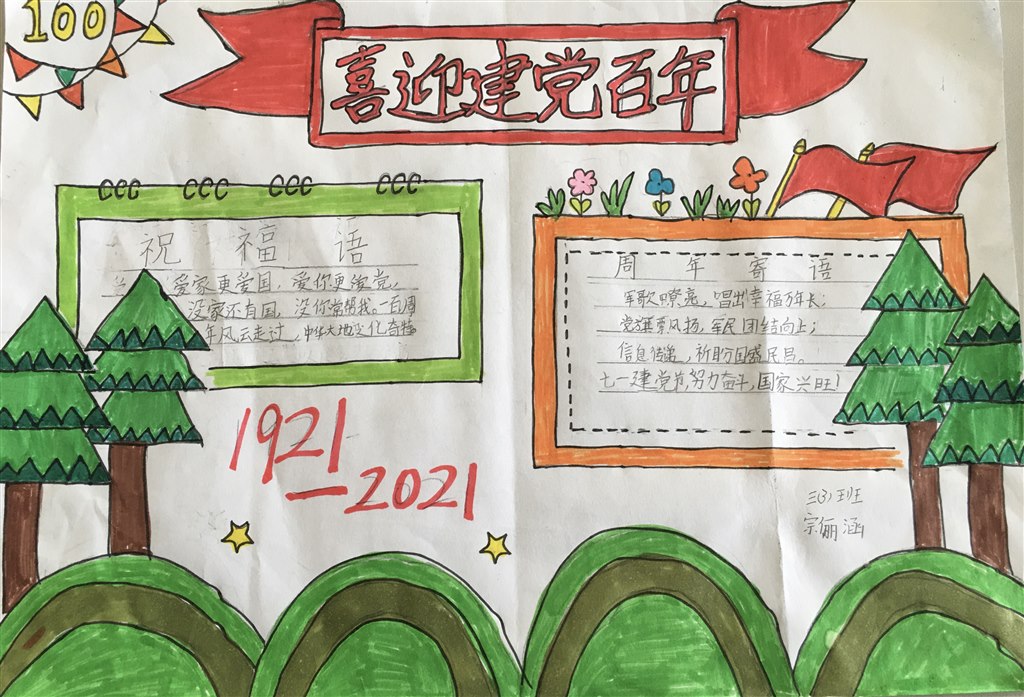 100
喜迎建党百年
祝福语
爱家更爱国，爱你更爱党，
没家还有国，没你常帮我。一百周
年风云走过，中华大地变化奇特
1921
—2021
周年寄语
军歌嘹亮，唱出幸福万年长；
党旗乘风扬，军民团结向上；
信息传递，祈盼国盛民昌。
七一建党节，努力奋斗，国家兴旺！
三(3)班
宗俪涵